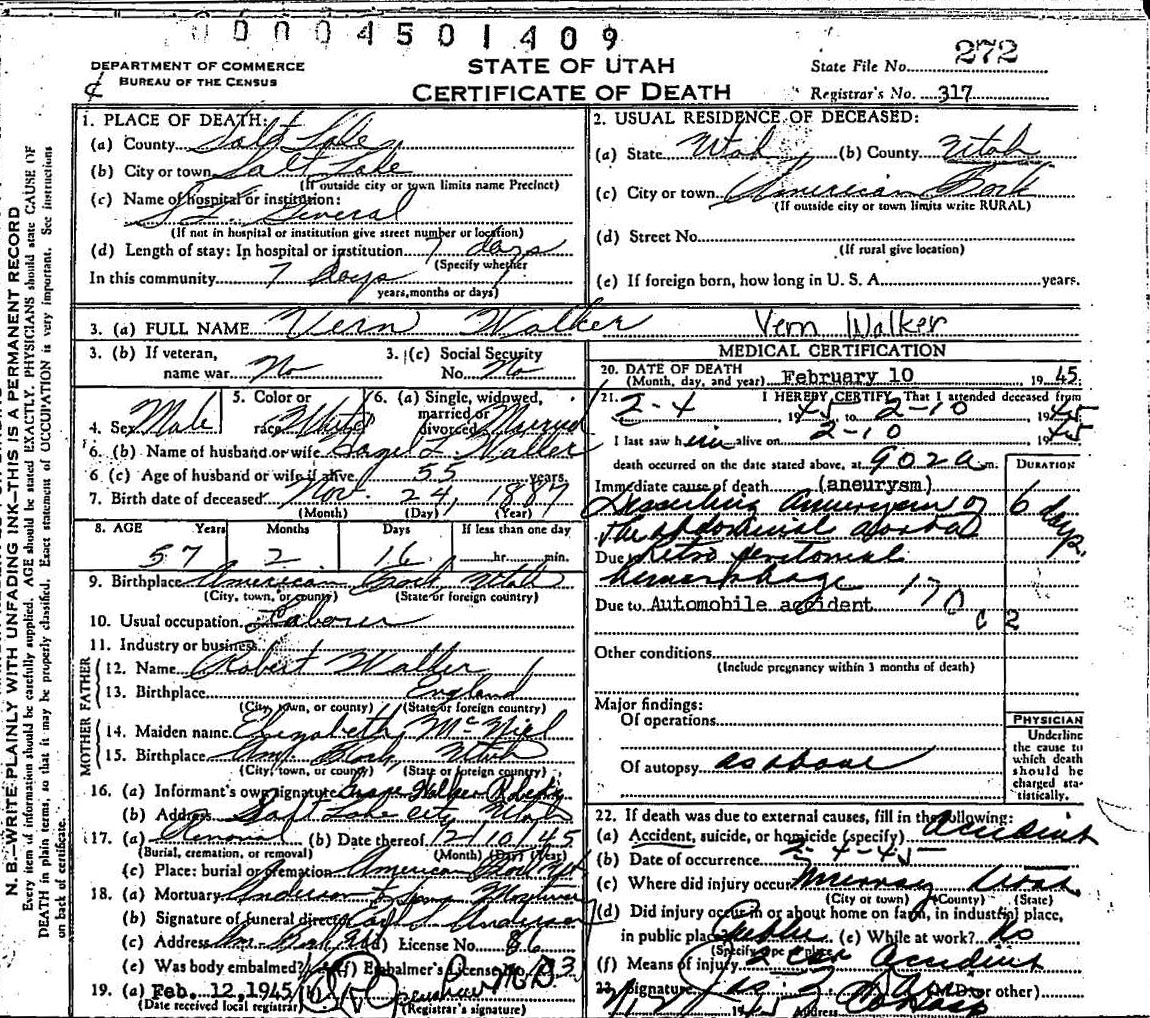 00004501409
DEPARTMENT OF COMMERCE
BUREAU OF THE CENSUS
STATE OF UTAH
CERTIFICATE OF DEATH
State File No. 272
Registrar's No. 317
N. B.—WRITE PLAINLY WITH UNFADING INK—THIS IS A PERMANENT RECORD
Every item of information should be carefully supplied. AGE should be stated EXACTLY. PHYSICIANS should state CAUSE OF
DEATH in plain terms, so that it may be properly classified. Exact statement of OCCUPATION is very important. See instructions
on back of certificate.
1. PLACE OF DEATH:
(a) County Salt Lake
(b) City or town Salt Lake
(If outside city or town limits name Precinct)
(c) Name of hospital or institution:
S L General
(If not in hospital or institution give street number or location)
(d) Length of stay: In hospital or institution 7 days
(Specify whether
In this community 7 Days
years, months or days)
2. USUAL RESIDENCE OF DECEASED:
(a) State Utah (b) County Utah
(c) City or town American Fork
(If outside city or town limits write RURAL)
(d) Street No.
(If rural give location)
(e) If foreign born, how long in U. S. A. years.
3. (a) FULL NAME Vern Walker Vern Walker
3. (b) If veteran, name war No
3. (c) Social Security No. No
4. Sex Male
5. Color or race White
6. (a) Single, widowed, married or divorced Married
6. (b) Name of husband or wife L. Walker
6 (c) Age of husband or wife if alive 55 years.
7. Birth date of deceased Nov. 24, 1887
(Month) (Day) (Year)
8. AGE Years Months Days If less than one day
57 2 16 hr. min.
9. Birthplace American Fork Utah
(City, town, or county) (State or foreign country)
10. Usual occupation Laborer
11. Industry or business
FATHER
12. Name Robert Walker
13. Birthplace England
(City, town, or county) (State or foreign country)
MOTHER
14. Maiden name Elizabeth McNiel
15. Birthplace Am. Fork, Utah
(City, town, or county) (State or foreign country)
16. (a) Informant's own signature Walker
(b) Address Salt Lake City Utah
17. (a) Removal (b) Date thereof 2/10/45
(Burial, cremation, or removal) (Month) (Day) (Year)
(c) Place: burial or cremation American Fork
18. (a) Mortuary Anderson & Sons Mortuary
(b) Signature of funeral director Anderson
(c) Address Am. Fork (d) License No. 86
(e) Was body embalmed? (f) Embalmer's License No.
19. (a) Feb. 12, 1945 (b) M.D.
(Date received local registrar) (Registrar's signature)
MEDICAL CERTIFICATION
20. DATE OF DEATH
(Month, day, and year) February 10 19 45
21. I HEREBY CERTIFY, That I attended deceased from
2-4 1945 to 2-10 1945
I last saw him alive on 2-10 1945
death occurred on the date stated above, at 902 a m. DURATION
Immediate cause of death (aneurysm)
Dissecting aneurysm of 6 days
the abdominal aorta
Due to Retro peritoneal
hemorrhage 170
Due to Automobile accident c 2
Other conditions
(Include pregnancy within 3 months of death)
Major findings:
Of operations
Of autopsy as above
PHYSICIAN
Underline
the cause to
which death
should be
charged sta-
tistically.
22. If death was due to external causes, fill in the following:
(a) Accident, suicide, or homicide (specify) accident
(b) Date of occurrence 2-4-45
(c) Where did injury occur Murray Utah
(City or town) (County) (State)
(d) Did injury occur in or about home on farm, in industrial place,
in public place? Public (e) While at work? No
(Specify type of place)
(f) Means of injury 2 car accident
23. Signature (M.D. or other)
Address